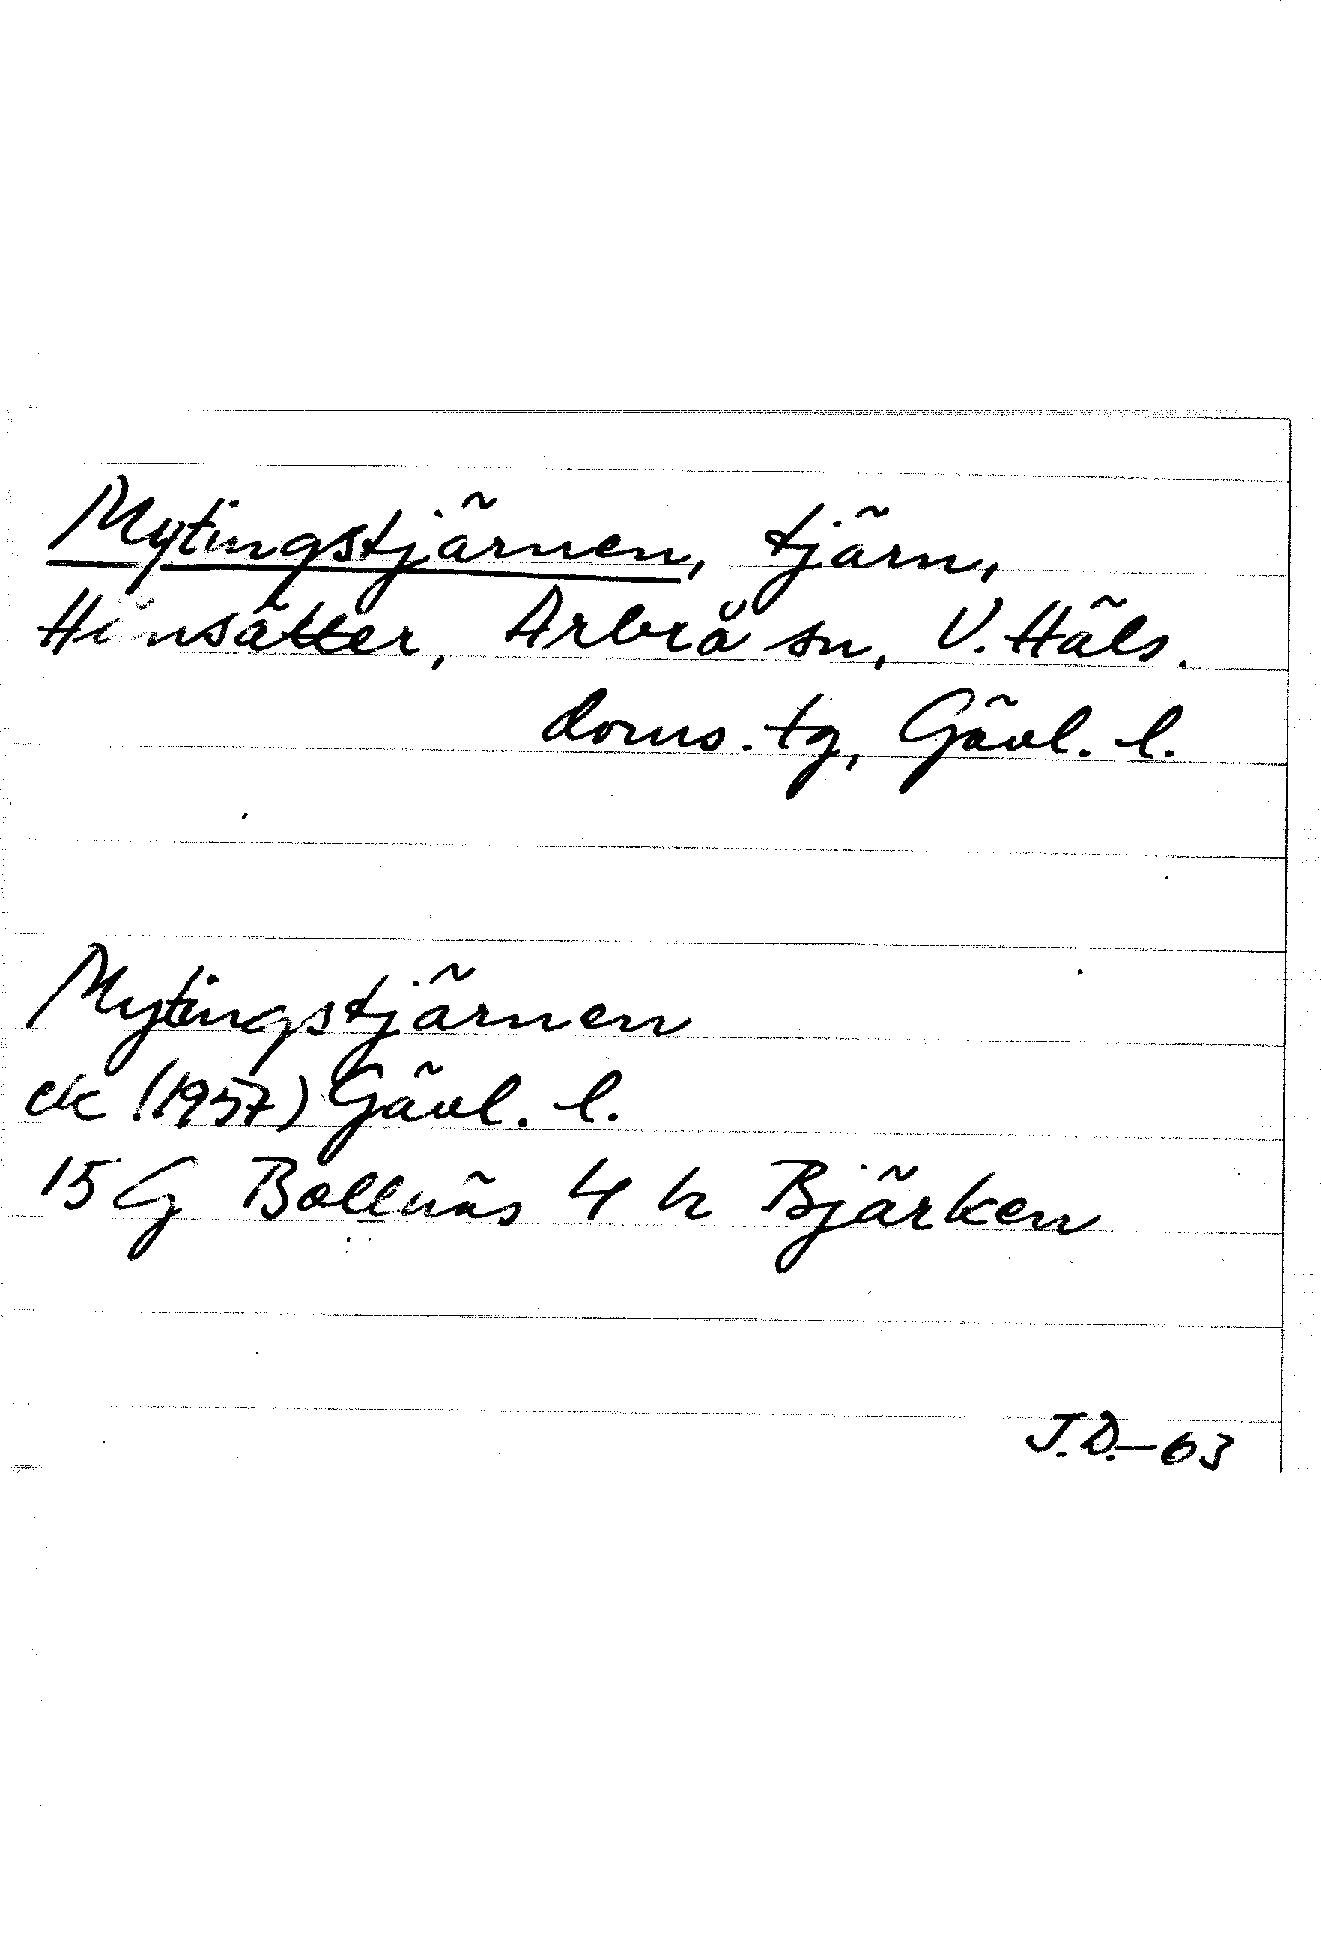 Mytingstjärnen, tjärn,
Hinsätter, Arbrå sn, V. Häls.
doms. tg, Gävl. l.
Mytingstjärnen
ek (1957) Gävl. l.
15 G Bollnäs 4 h Bjärken
J.D.–63